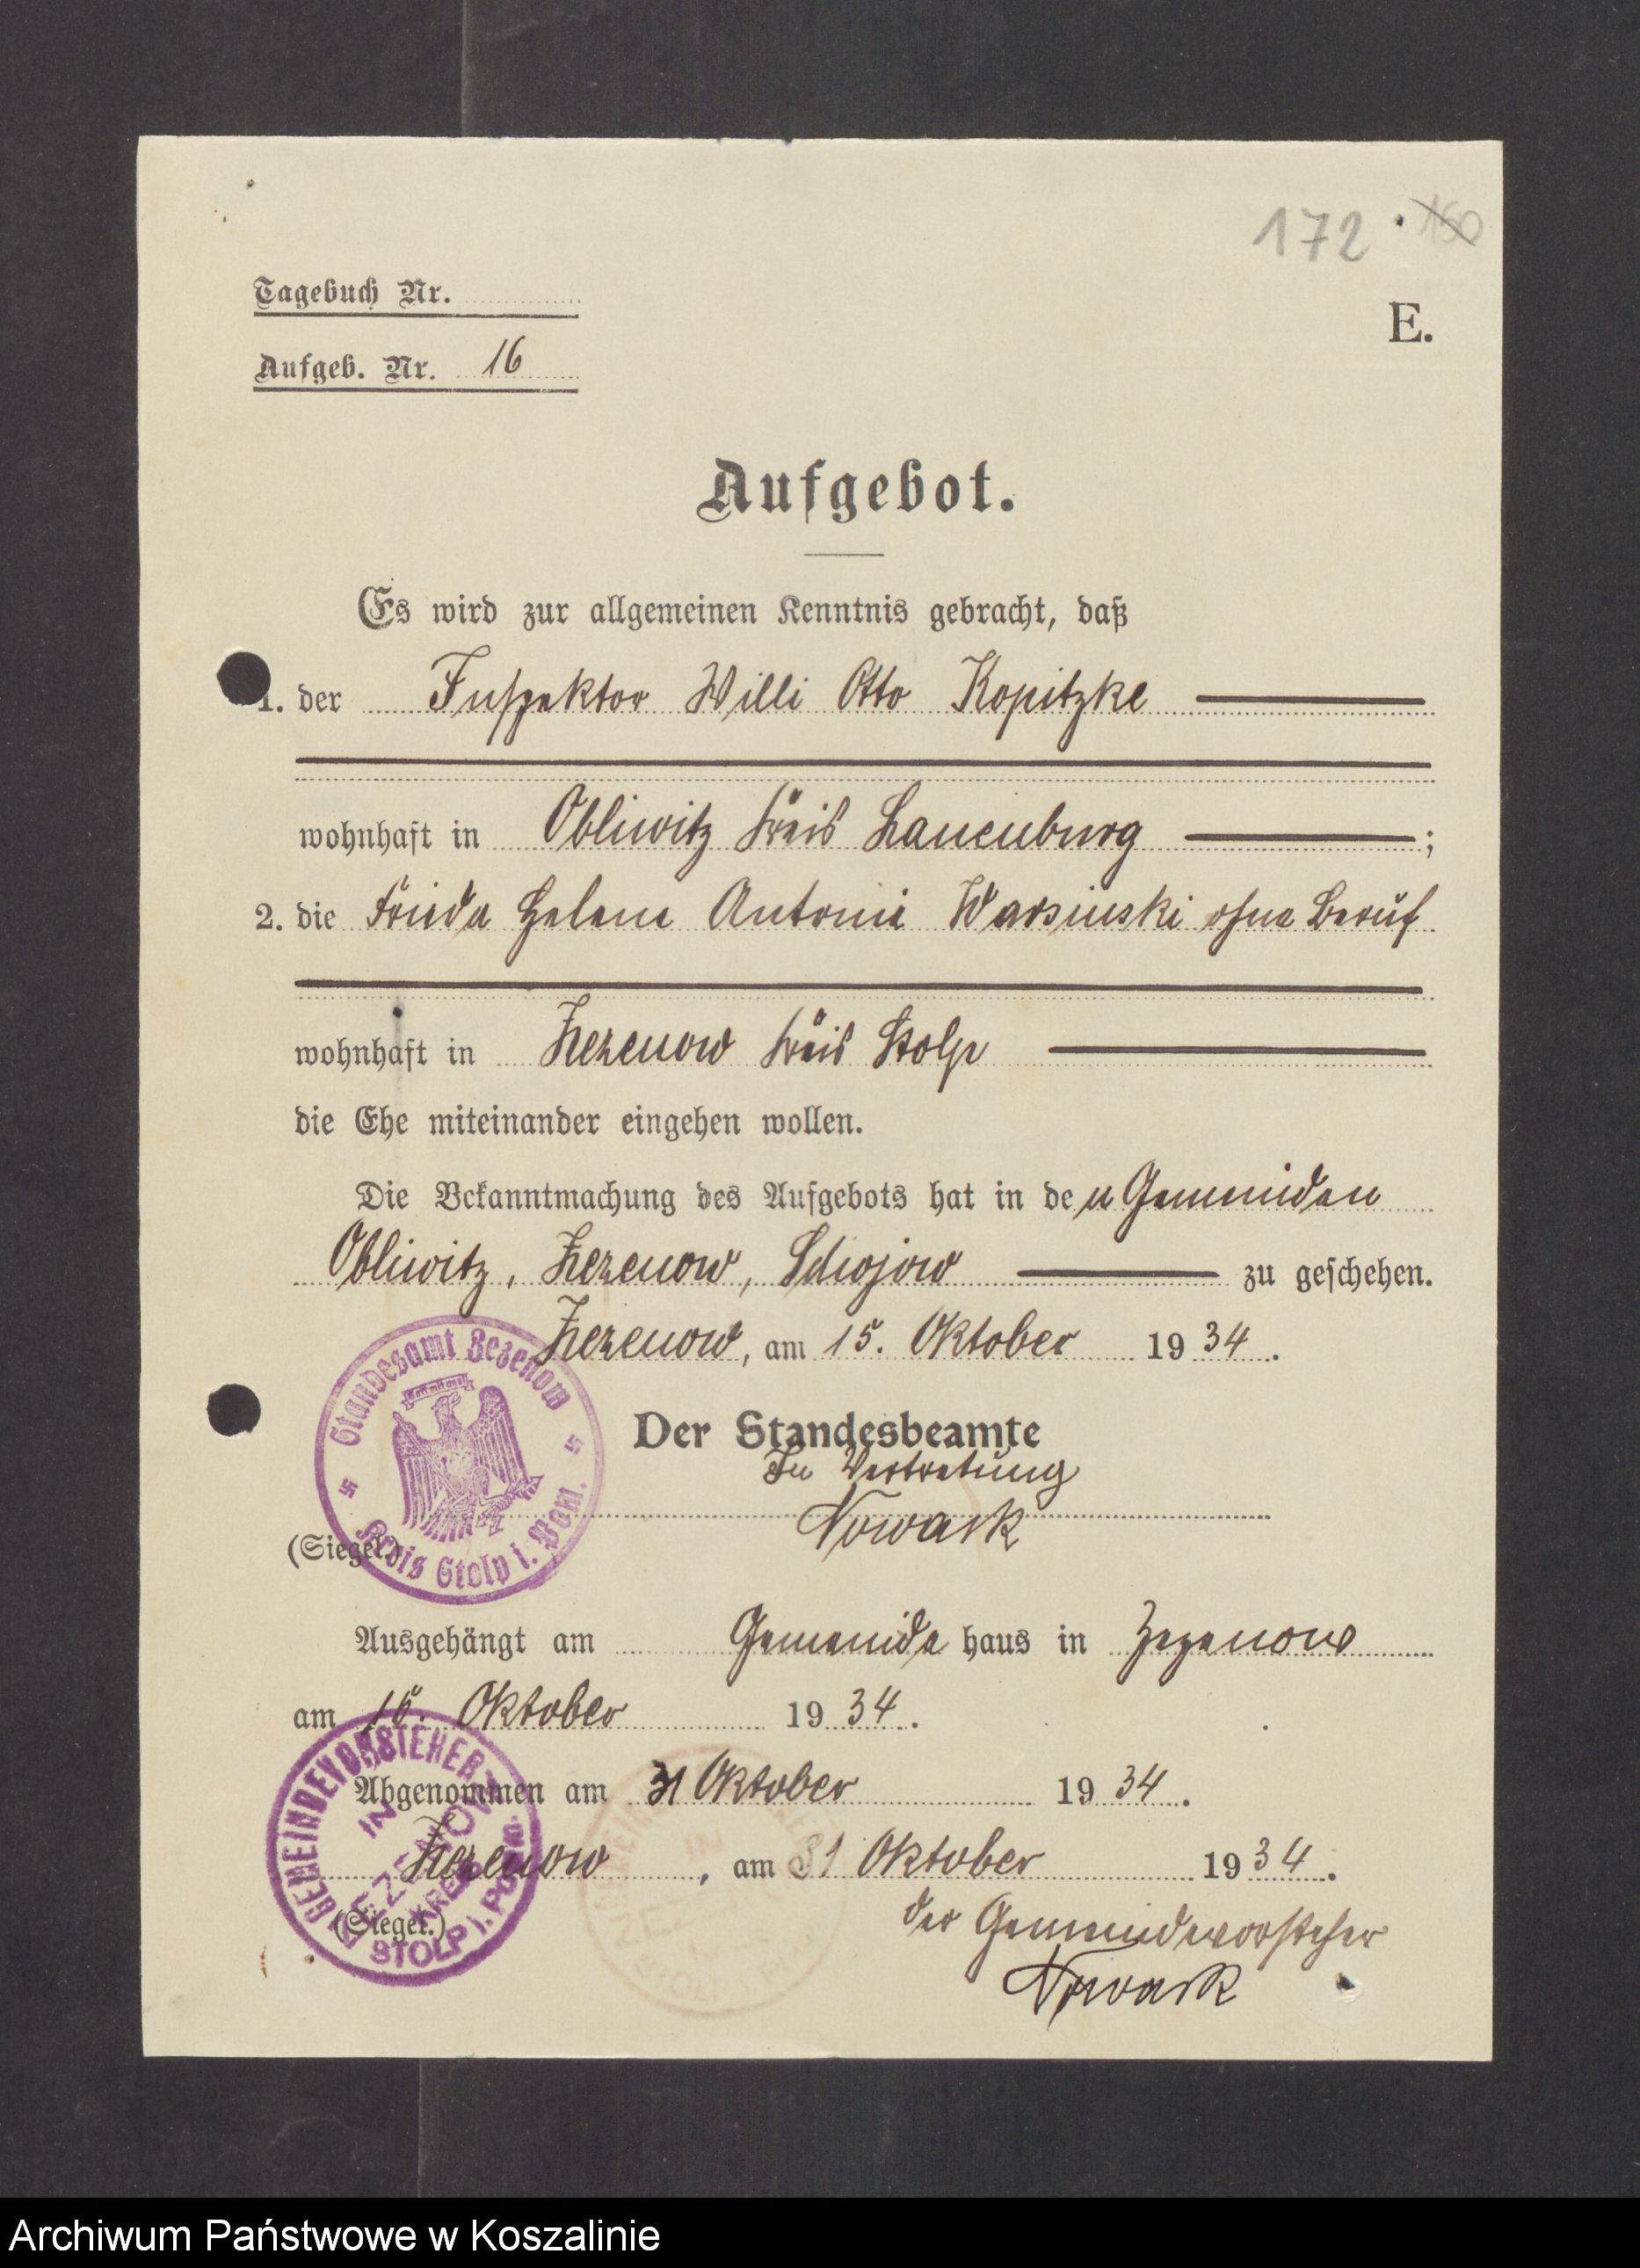 172 150
Tagebuch Nr.
E.
Aufgeb. Nr. 16
Aufgebot.
Es wird zur allgemeinen Kenntnis gebracht, daß
1. der Inspektor Willi Otto Kopitzke
wohnhaft in Obliwitz Kreis Lauenburg ;
2. die Frieda Helene Antonie Warsinski ohne Beruf
wohnhaft in Zezenow Kreis Stolp
die Ehe miteinander eingehen wollen.
Die Bekanntmachung des Aufgebots hat in den Gemeinden
Obliwitz, Zezenow, Schojow zu geschehen.
Zezenow, am 15. Oktober 1934.
Standesamt Zezenow
Kreis Stolp i. Pom.
Der Standesbeamte
In Vertretung
Nowack
(Siegel.)
Ausgehängt am Gemeindehaus in Zezenow
am 16. Oktober 1934.
Abgenommen am 31 Oktober 1934.
Zezenow, am 31 Oktober 1934.
GEMEINDEVORSTEHER
IN
ZEZENOW
KREIS
STOLP i. POM.
(Siegel.)
der Gemeindevorsteher
Nowack
Archiwum Państwowe w Koszalinie